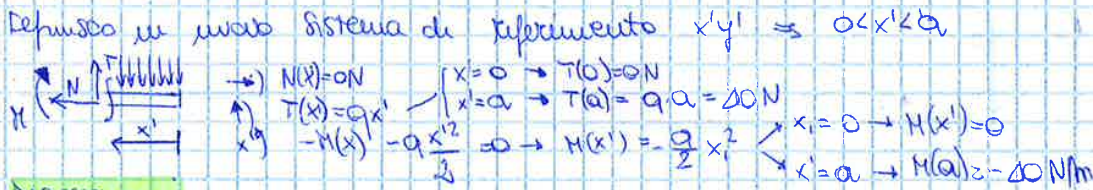 Definisco un nuovo sistema di riferimento x'y' ⇒ 0<x'<a
M N T →) N(x)=0N x'=0 → T(0)=0N
T(x)=qx' x'=a → T(a)=q·a=10N
x' x') -M(x)' -q x'²/2 =0 → M(x')=-q/2 x'² x'=0 → M(x')=0
x'=a → M(a)=-10 N/m